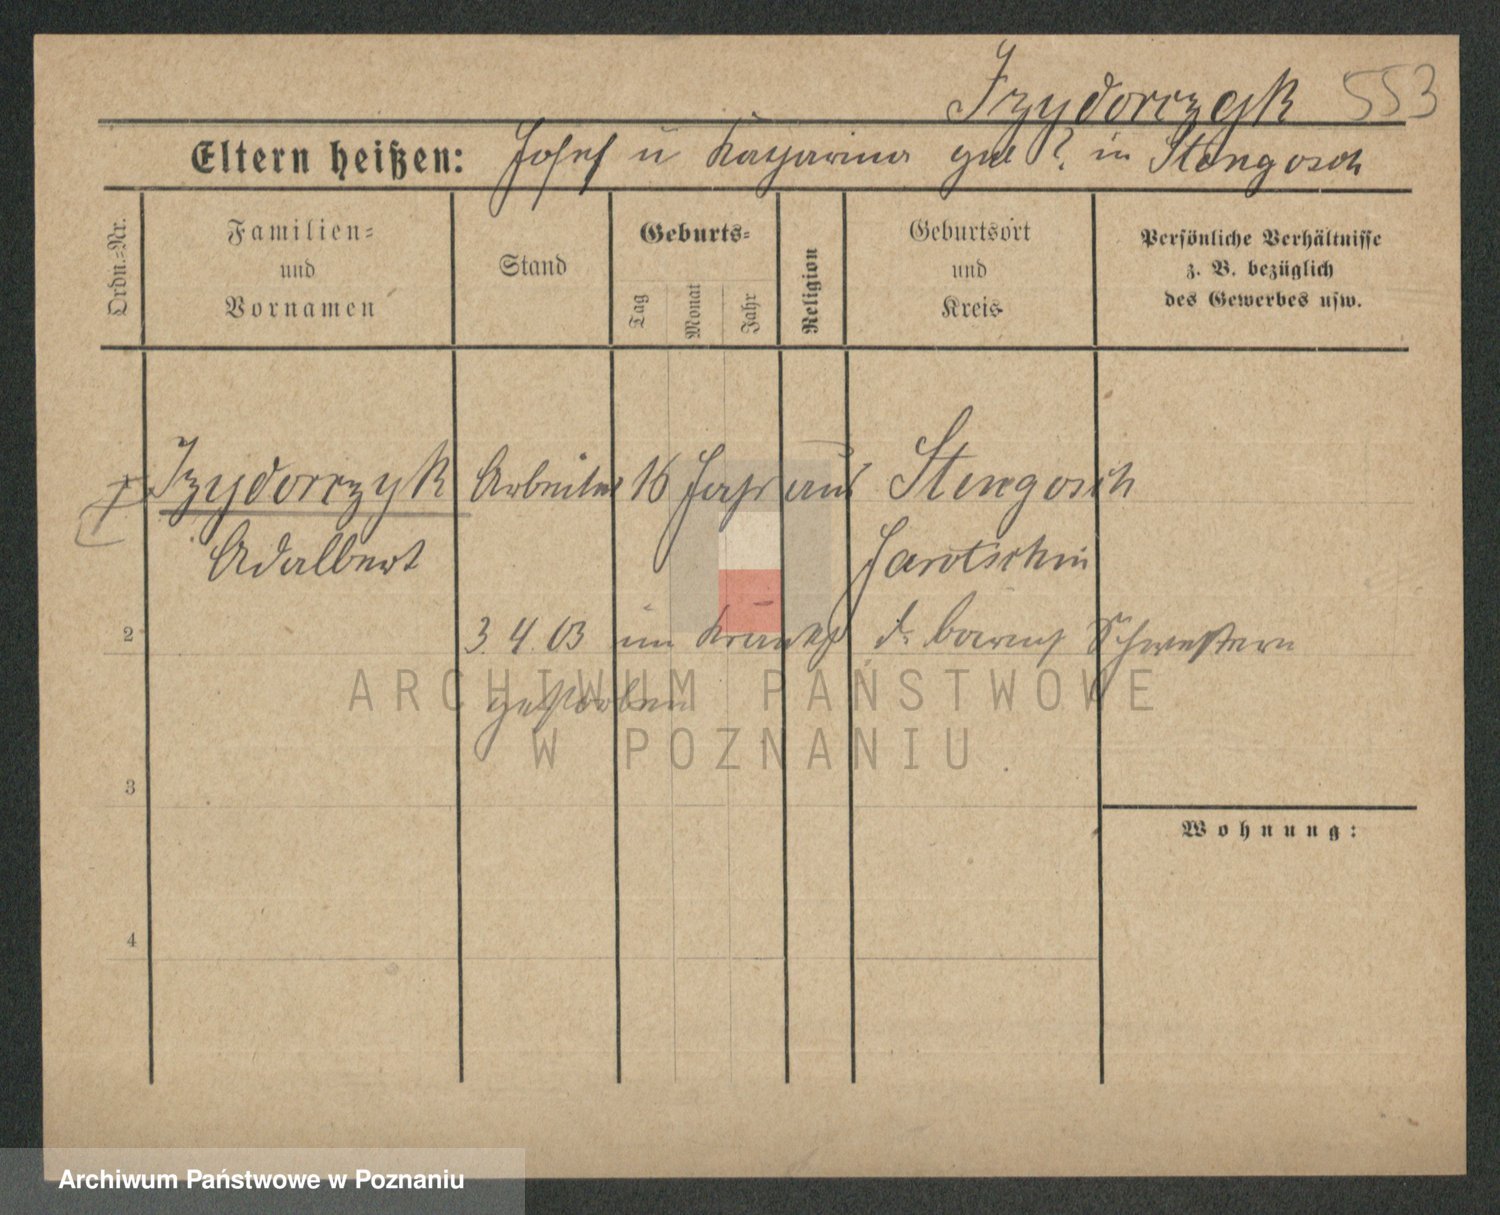 Izydorczyk 553
Eltern heißen: Josef u Katharina geb ? in Stengosch
Ordn.-Nr.
Familien-
und
Vornamen
Stand
Geburts-
Tag
Monat
Jahr
Religion
Geburtsort
und
Kreis
Persönliche Verhältnisse
z. B. bezüglich
des Gewerbes usw.
Izydorczyk Arbeiter 16 Jahr aus Stengosch
Adalbert Jarotschin
2 3. 4. 03 im Krankh d. barmh Schwestern
gestorben
3
Wohnung:
4
ARCHIWUM PAŃSTWOWE
W POZNANIU
Archiwum Państwowe w Poznaniu